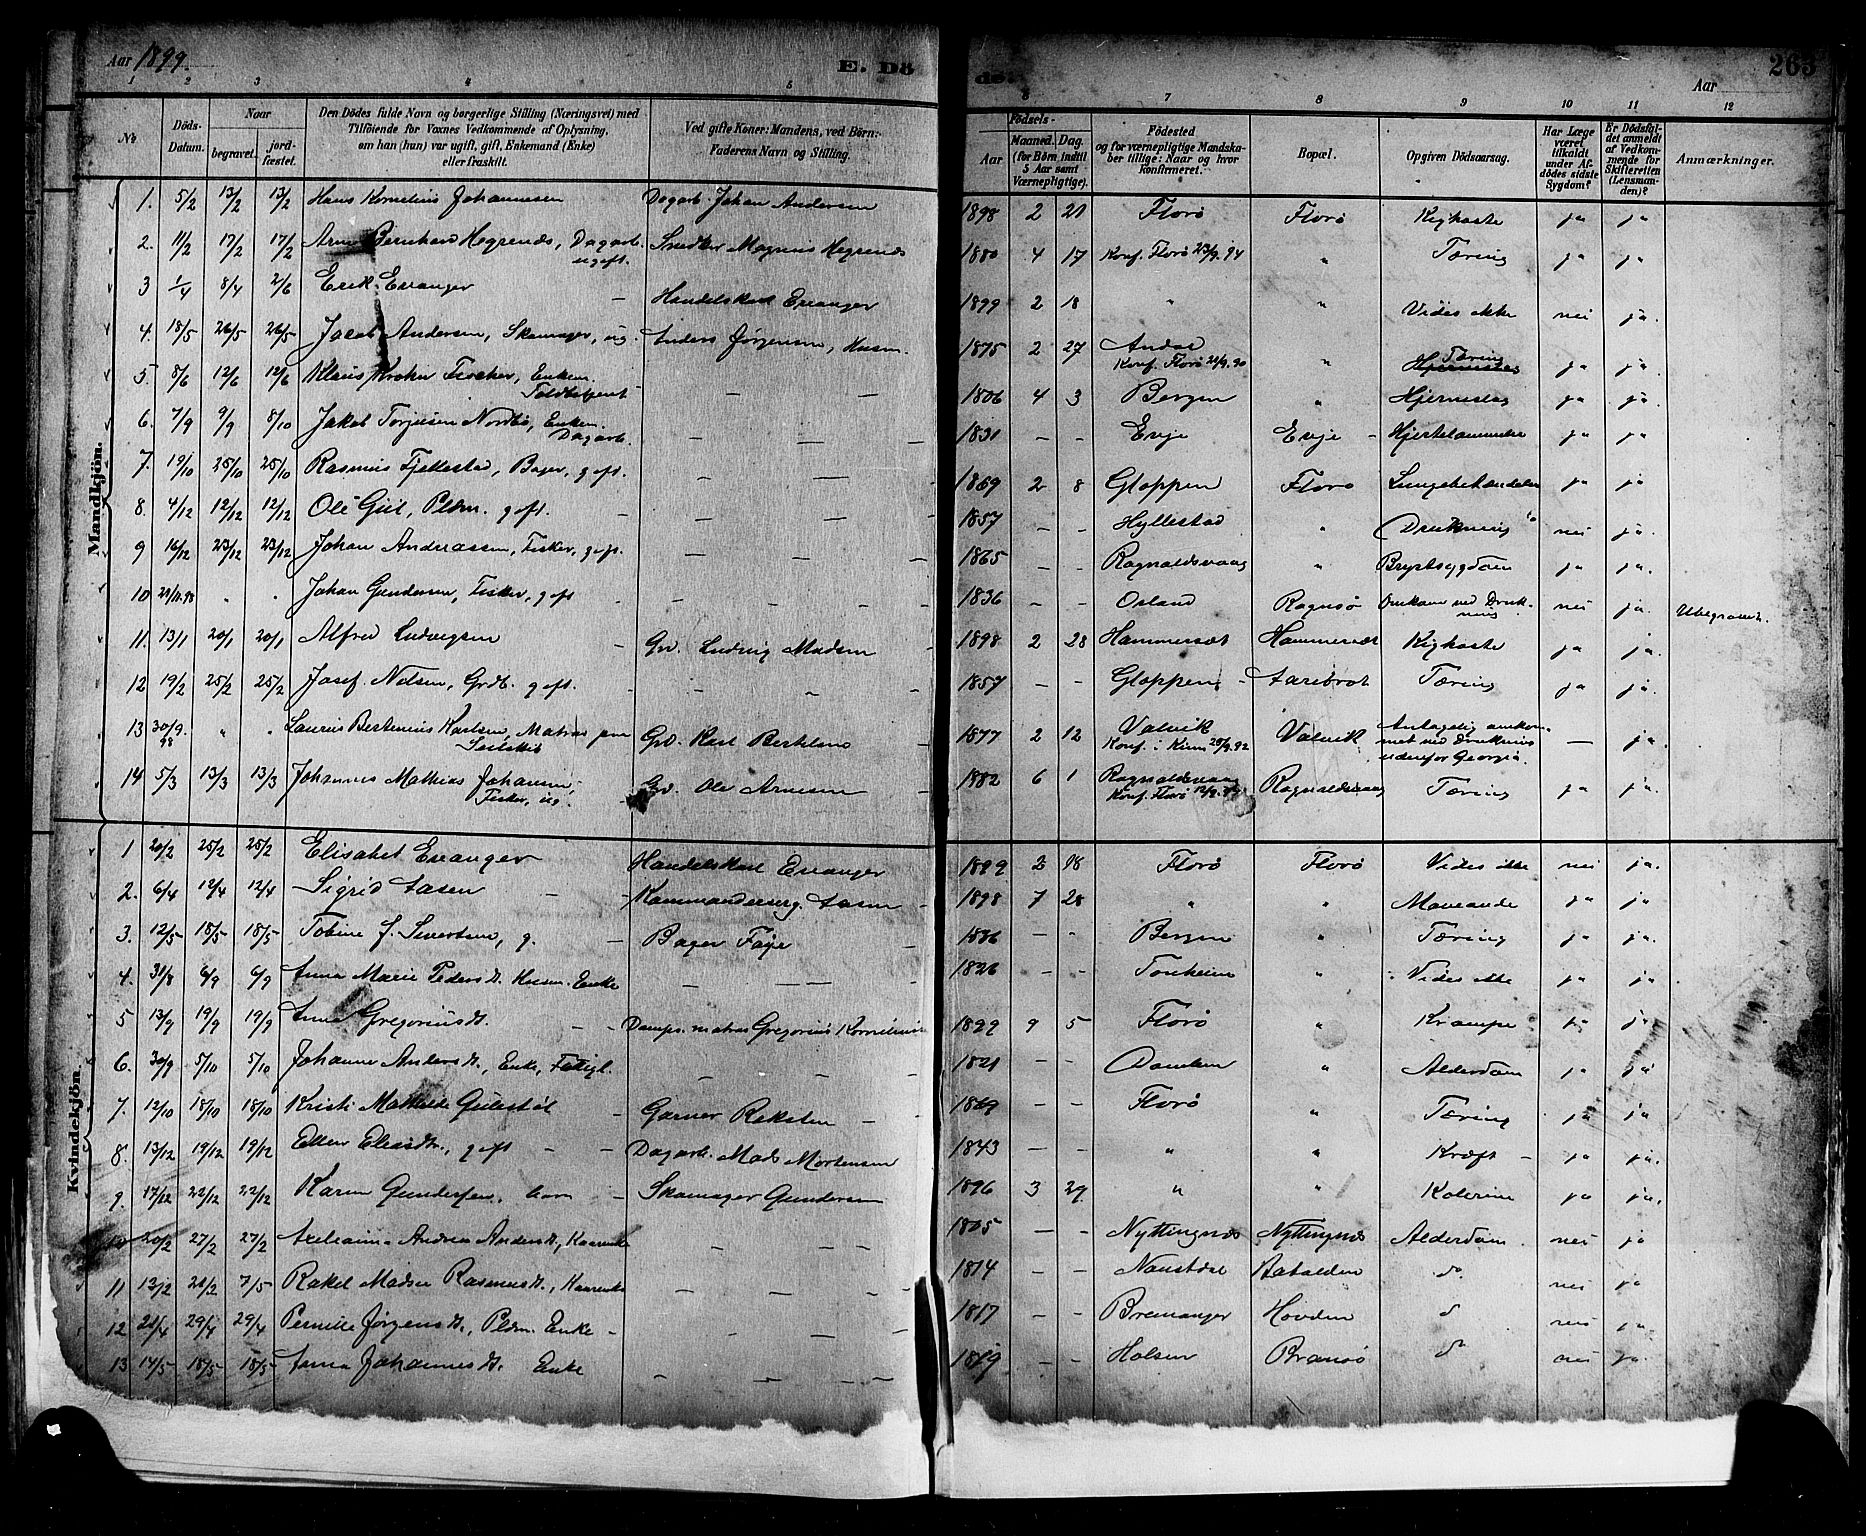 Aar 1899.
E. Dö
de.
Aar
263
1 2 3 4 5 6 7 8 9 10 11 12
No
Döds-Datum.
Naar
begravet.
jord-fæstet.
Den Dödes fulde Navn og borgerlige Stilling (Næringsvei) med
Tilföiende for Voxnes Vedkommende af Oplysning,
om han (hun) var ugift, gift, Enkemand (Enke)
eller fraskilt.
Ved gifte Koner: Mandens, ved Börn:
Faderens Navn og Stilling.
Födsels-
Aar
Maaned. Dag.
(for Börn indtil
5 Aar samt
Værnepligtige).
Födested
og for værnepligtige Mandska-
ber tillige: Naar og hvor
konfirmeret.
Bopæl.
Opgiven Dödsaarsag.
Har Læge
været
tilkaldt
under Af-
dödes sidste
Sygdom?
Er Dödsfal-
det anmeldt
af Vedkom-
mende for
Skifteretten
(Lensman-
den)?
Anmærkninger.
Mandkjön.
1. 5/2 13/2 13/2 Hans Kornelius Johannesen Dagarb. Johan Andersen 1898 2 21 Florö Florö Kighoste ja ja
2. 11/2 17/2 17/2 Arne Bernhard Hegrenæs, Dagarb. ugift. Snedker Magnus Hegrenæs 1880 4 17 Konf. Florö 23/9 94 " Tæring ja ja
3 1/4 8/4 2/6 Erik Esvanger – Handelskarl Esvanger 1899 2 18 " " Vides ikke nei ja.
4. 18/5 26/5 26/5 Jacob Andersen, Skomager, ug. Anders Jørgensen, Husm. 1875 2 27 Andal Konf. Florö 21/9 90 " Tæring ja ja.
5. 8/6 12/6 12/6 Klaus Krohn Fischer, Enkem. Toldbetjent – – 1806 4 3 Bergen " Hjerneslag ja ja
6. 7/9 9/9 8/10 Jakob Torjusen Nordbö, Enkem. Dagarb. – – – 1831 – – Evje Evje – Hjertelammelse ja ja
7. 19/10 25/10 25/10 Rasmus Fjellestad, Bager, gift. – – – 1869 2 8 Gloppen Florö ja ja
8. 4/12 12/12 12/12 Ole Guil, Pldm. gift. – – – – 1857 – – Hyllestad " Drukning nei ja.
9 16/12 23/12 23/12 Johan Andreassen, Fisker, gift. – – – 1865 – – Ragnaldsvaag " Brystsygdom ja ja.
10 " " Johan Gundersen, Fisker, gift – – – – 1836 – – Ragnsö Omkom ved Druk-
ning nei ja. Ubegravet.
11. 13/1 20/1 20/1 Alfred Ludvigsen Gbr. Ludvig Madsen 1898 2 28 Hammersæt Hammersæt Kighoste ja ja.
12 19/2 25/2 25/2 Josef Nilsen, Grdb. gift. – – " – 1857 – – Gloppen – Aarebrot Tæring ja ja.
13 30/9 98 " " Laurits Bertinius Karlsen, Matros paa Seilskib Gbr. Karl Bertelsen – 1877 2 12 Valvik Konf. i Kinn 25/9 92 Valvik Antagelig omkom-
met ved Drukning
udenfor Georgia. – ja.
14 5/3 13/3 13/3 Johannes Mathias Johansen, Fisker, ug. Gbr. Ole Arnesen – 1882 6 1 Ragnaldsvaag Konf. Florö Ragnaldsvaag Tæring ja ja.
Kvindekjön.
1 20/2 25/2 25/2 Elisabet Esvanger Handelskarl Esvanger 1899 2 18 Florö Florö Vides ikke nei ja.
2. 6/4 12/4 12/4 Sigrid Aasen – – Kommandersergt. Aasen – 1898 7 28 " " Maveonde ja ja
3. 12/5 18/5 18/5 Tobine f. Sivertsen, g. – Bager Faye – 1836 – – Bergen " Tæring ja ja.
4. 31/8 6/9 6/9 Anna Marie Pedersdt. Husm. Enke – – – 1826 – – Tonheim " Vides ikke ja ja
5 13/9 19/9 19/9 Anna Gregoriusdt. – – Damps. matros Gregorius Kornelius 1899 9 5 Florö " Krampe ja ja
6. 30/9 5/10 5/10 Johanne Andersdt., Enke, Fattigl. – – – 1821 – – " Alderdom ja ja
7. 12/10 18/10 18/10 Kristi Mathilde Gulestöl – Garver Reksten – 1869 – – Florö " Tæring ja ja
8. 13/12 19/12 19/12 Ellen Eliasdt., gift – – Dagarb. Mads Mortensen 1843 – – " " Kræft – ja ja.
9. 17/12 22/12 22/12 Karen Gundersen, barn – Skomager Gundersen 1896 3 29 " " Kolerine ja ja.
10 20/2 27/2 27/2 Axeliaima Andrea Andersdt, Kaarenke – – – 1805 – – Nyttingnæs Nyttingnæs Alderdom. nei ja
11 7/5 Rakel Madsa Rasmusdt., Kaarenke – – – 1814 – – Naustdal Batalden do nei ja
12 21/4 29/4 29/4 Pernille Jørgensdt., Pldm. Enke – – – – 1817 – – Bremanger Hovden do nei ja.
13 14/5 18/5 18/5 Anna Johannesdt. Enke – – – 1819 – – Holsen Bransö do nei ja.